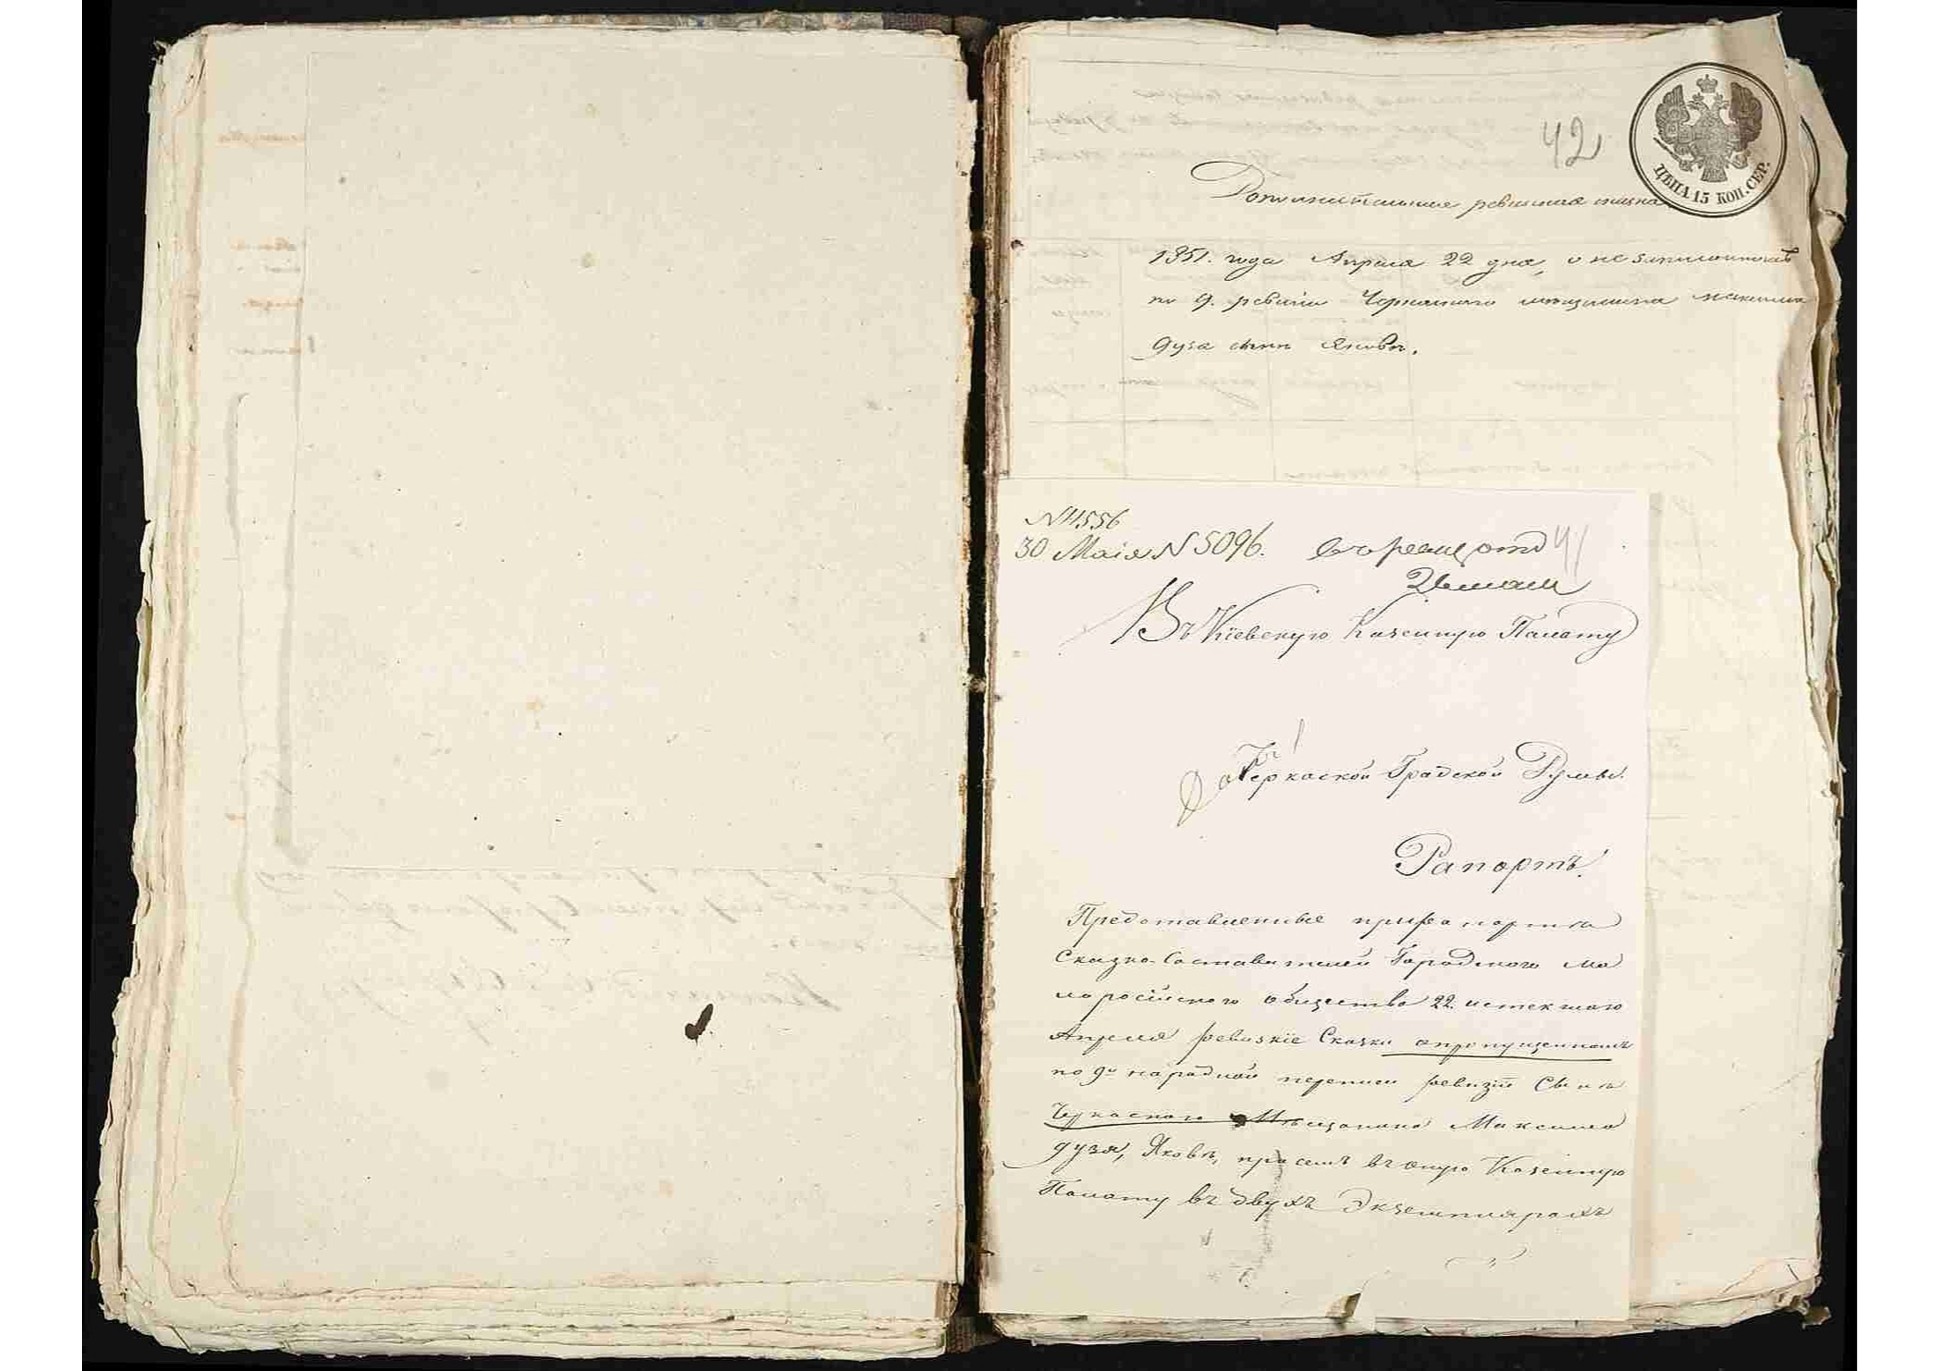 42
ЦѢНА 15 КОП. СЕР.
Дополнительная ревизская сказка
1851. года Апреля 22 дня, о не записанномъ
по 9. ревизіи Черкаскаго мещанина максима
дуза сынъ Яковъ.
N 4556
30 Маія N 5096.
41
Въ Кіевскую Казенную Палату
Черкаской Градской Думы.
Рапортъ.
Представленные при рапорта
Сказко-Составителей Городского ма
лоросійского общества 22. истекшаго
Апреля ревизкіе Сказки опропущенномъ
по 9й народной переписи ревизіи Сынъ
Черкаского Мѣщанина Максима
дузя, Яковъ, при семъ въ оную Казенную
Палату въ двухъ Экземплярахъ